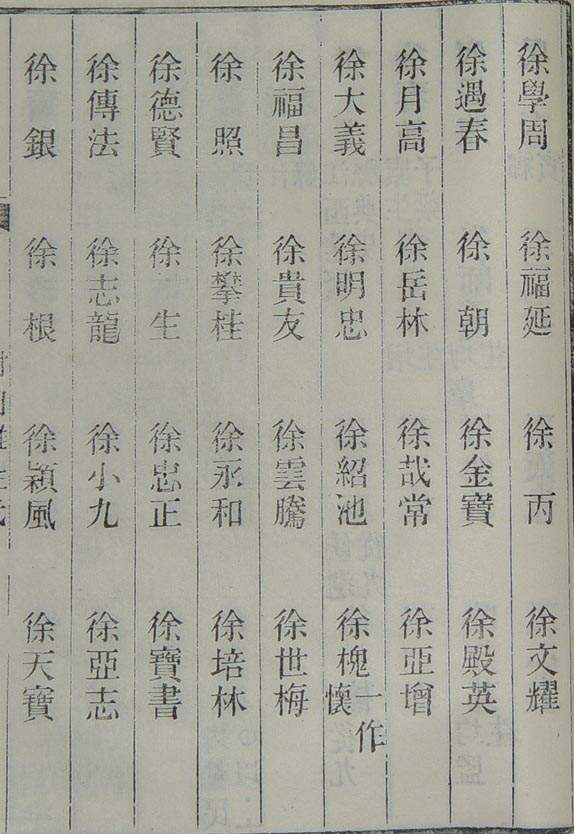 徐學周 徐福延 徐丙 徐文耀
徐遇春 徐朝 徐金寶 徐殿英
徐月高 徐岳林 徐哉常 徐亞增
徐大義 徐明忠 徐紹池 徐槐一作懷
徐福昌 徐貴友 徐雲騰 徐世梅
徐照 徐攀桂 徐永和 徐培林
徐德賢 徐生 徐忠正 徐寶書
徐傳法 徐志龍 徐小九 徐亞志
徐銀 徐根 徐穎風 徐天寶